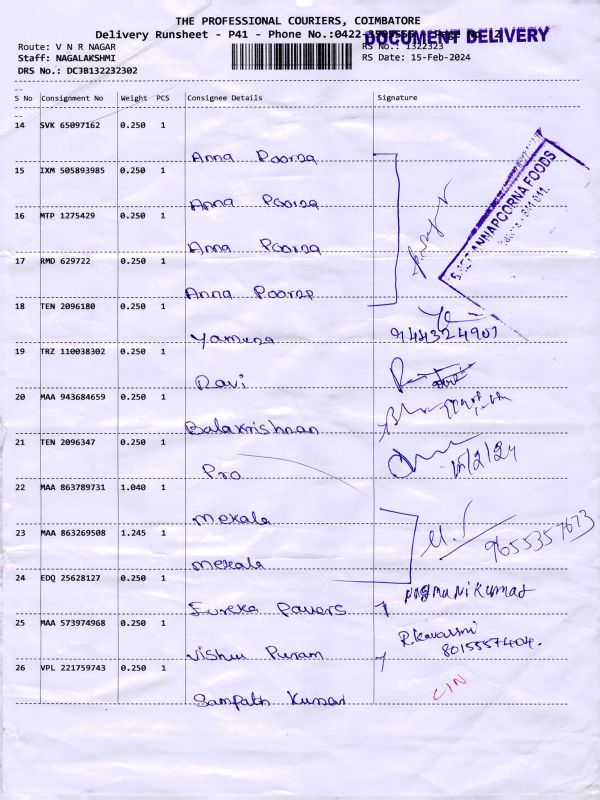 THE PROFESSIONAL COURIERS, COIMBATORE
Delivery Runsheet - P41 - Phone No.:0422- Page No
DOCUMENT DELIVERY
Route: V N R NAGAR RS No.: 1322323
Staff: NAGALAKSHMI RS Date: 15-Feb-2024
DRS No.: DCJB132232302
S No Consignment No Weight PCS Consignee Details Signature
14 SVK 65097162 0.250 1
Anna Poorna
15 IXM 505893985 0.250 1
Anna Poorna
16 MTP 1275429 0.250 1
Anna Poorna
ANNAPOORNA FOODS
17 RMD 629722 0.250 1
Anna Poorna
18 TEN 2096180 0.250 1
Yamuna 9444324907
19 TRZ 110038302 0.250 1
Ravi
20 MAA 943684659 0.250 1
Balakrishnan
21 TEN 2096347 0.250 1
Pro 15/2/24
22 MAA 863789731 1.040 1
Mekala
23 MAA 863269508 1.245 1
9655357673
Mekala
24 EDQ 25628127 0.250 1
Eureka Pavers
25 MAA 573974968 0.250 1
8015557404.
Vishnu Puram
26 VPL 221759743 0.250 1
CIN
Sampath Kumar